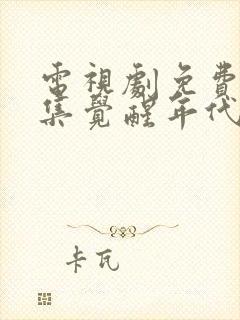 電視劇免費
集覺醒年代
卡瓦